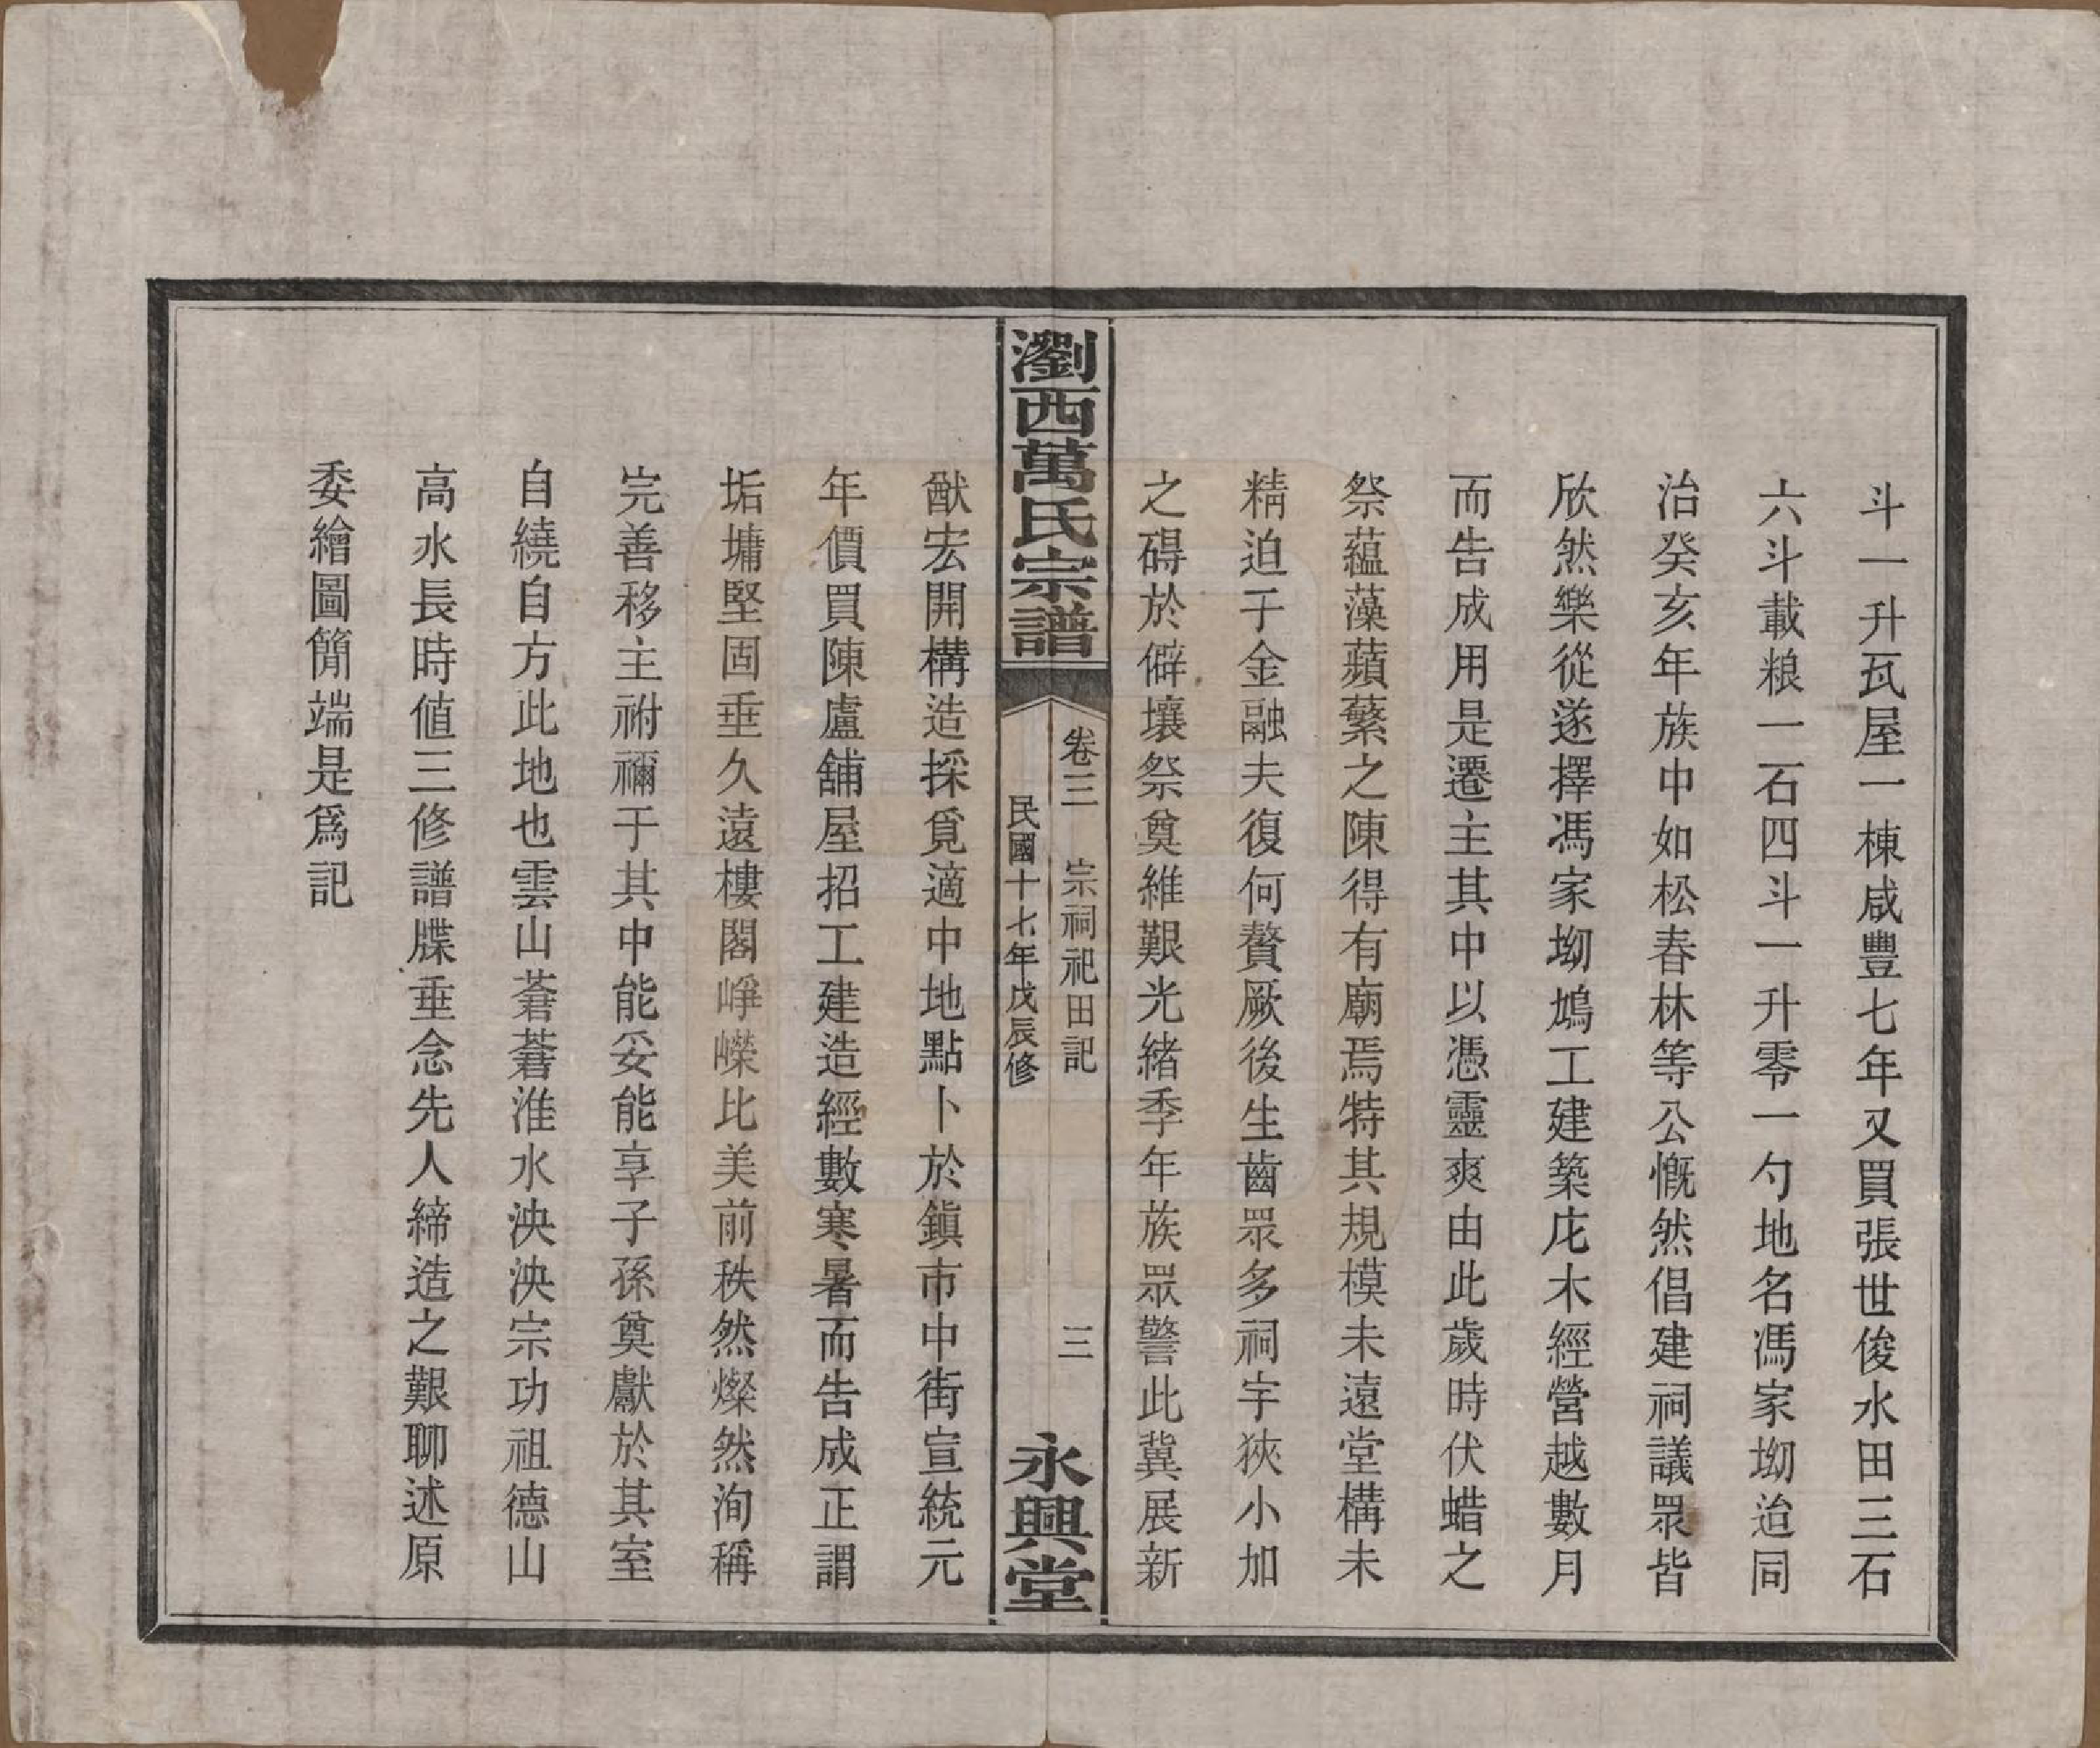 斗一升瓦屋一棟咸豐七年又買張世俊水田三石
六斗載粮一石四斗一升零一勺地名馮家坳迨同
治癸亥年族中如松春林等公慨然倡建祠議眾皆
欣然樂從遂擇馮家坳鳩工建築庀木經營越數月
而告成用是遷主其中以憑靈爽由此歲時伏蜡之
祭蘊藻蘋蘩之陳得有廟焉特其規模未遠堂構未
精迫于金融夫復何贅厥後生齒眾多祠宇狹小加
之碍於僻壤祭奠維艱光緒季年族眾警此冀展新
瀏西萬氏宗譜
卷三 宗祠祀田記 三
民國十七年戊辰修
永興堂
猷宏開構造採覓適中地點卜於鎮市中街宣統元
年價買陳盧舖屋招工建造經數寒暑而告成正謂
垢墉堅固垂久遠樓閣崢嶸比美前秩然燦然洵稱
完善移主祔禰于其中能妥能享子孫奠獻於其室
自繞自方此地也雲山蒼蒼淮水泱泱宗功祖德山
高水長時值三修譜牒垂念先人締造之艱聊述原
委繪圖簡端是爲記